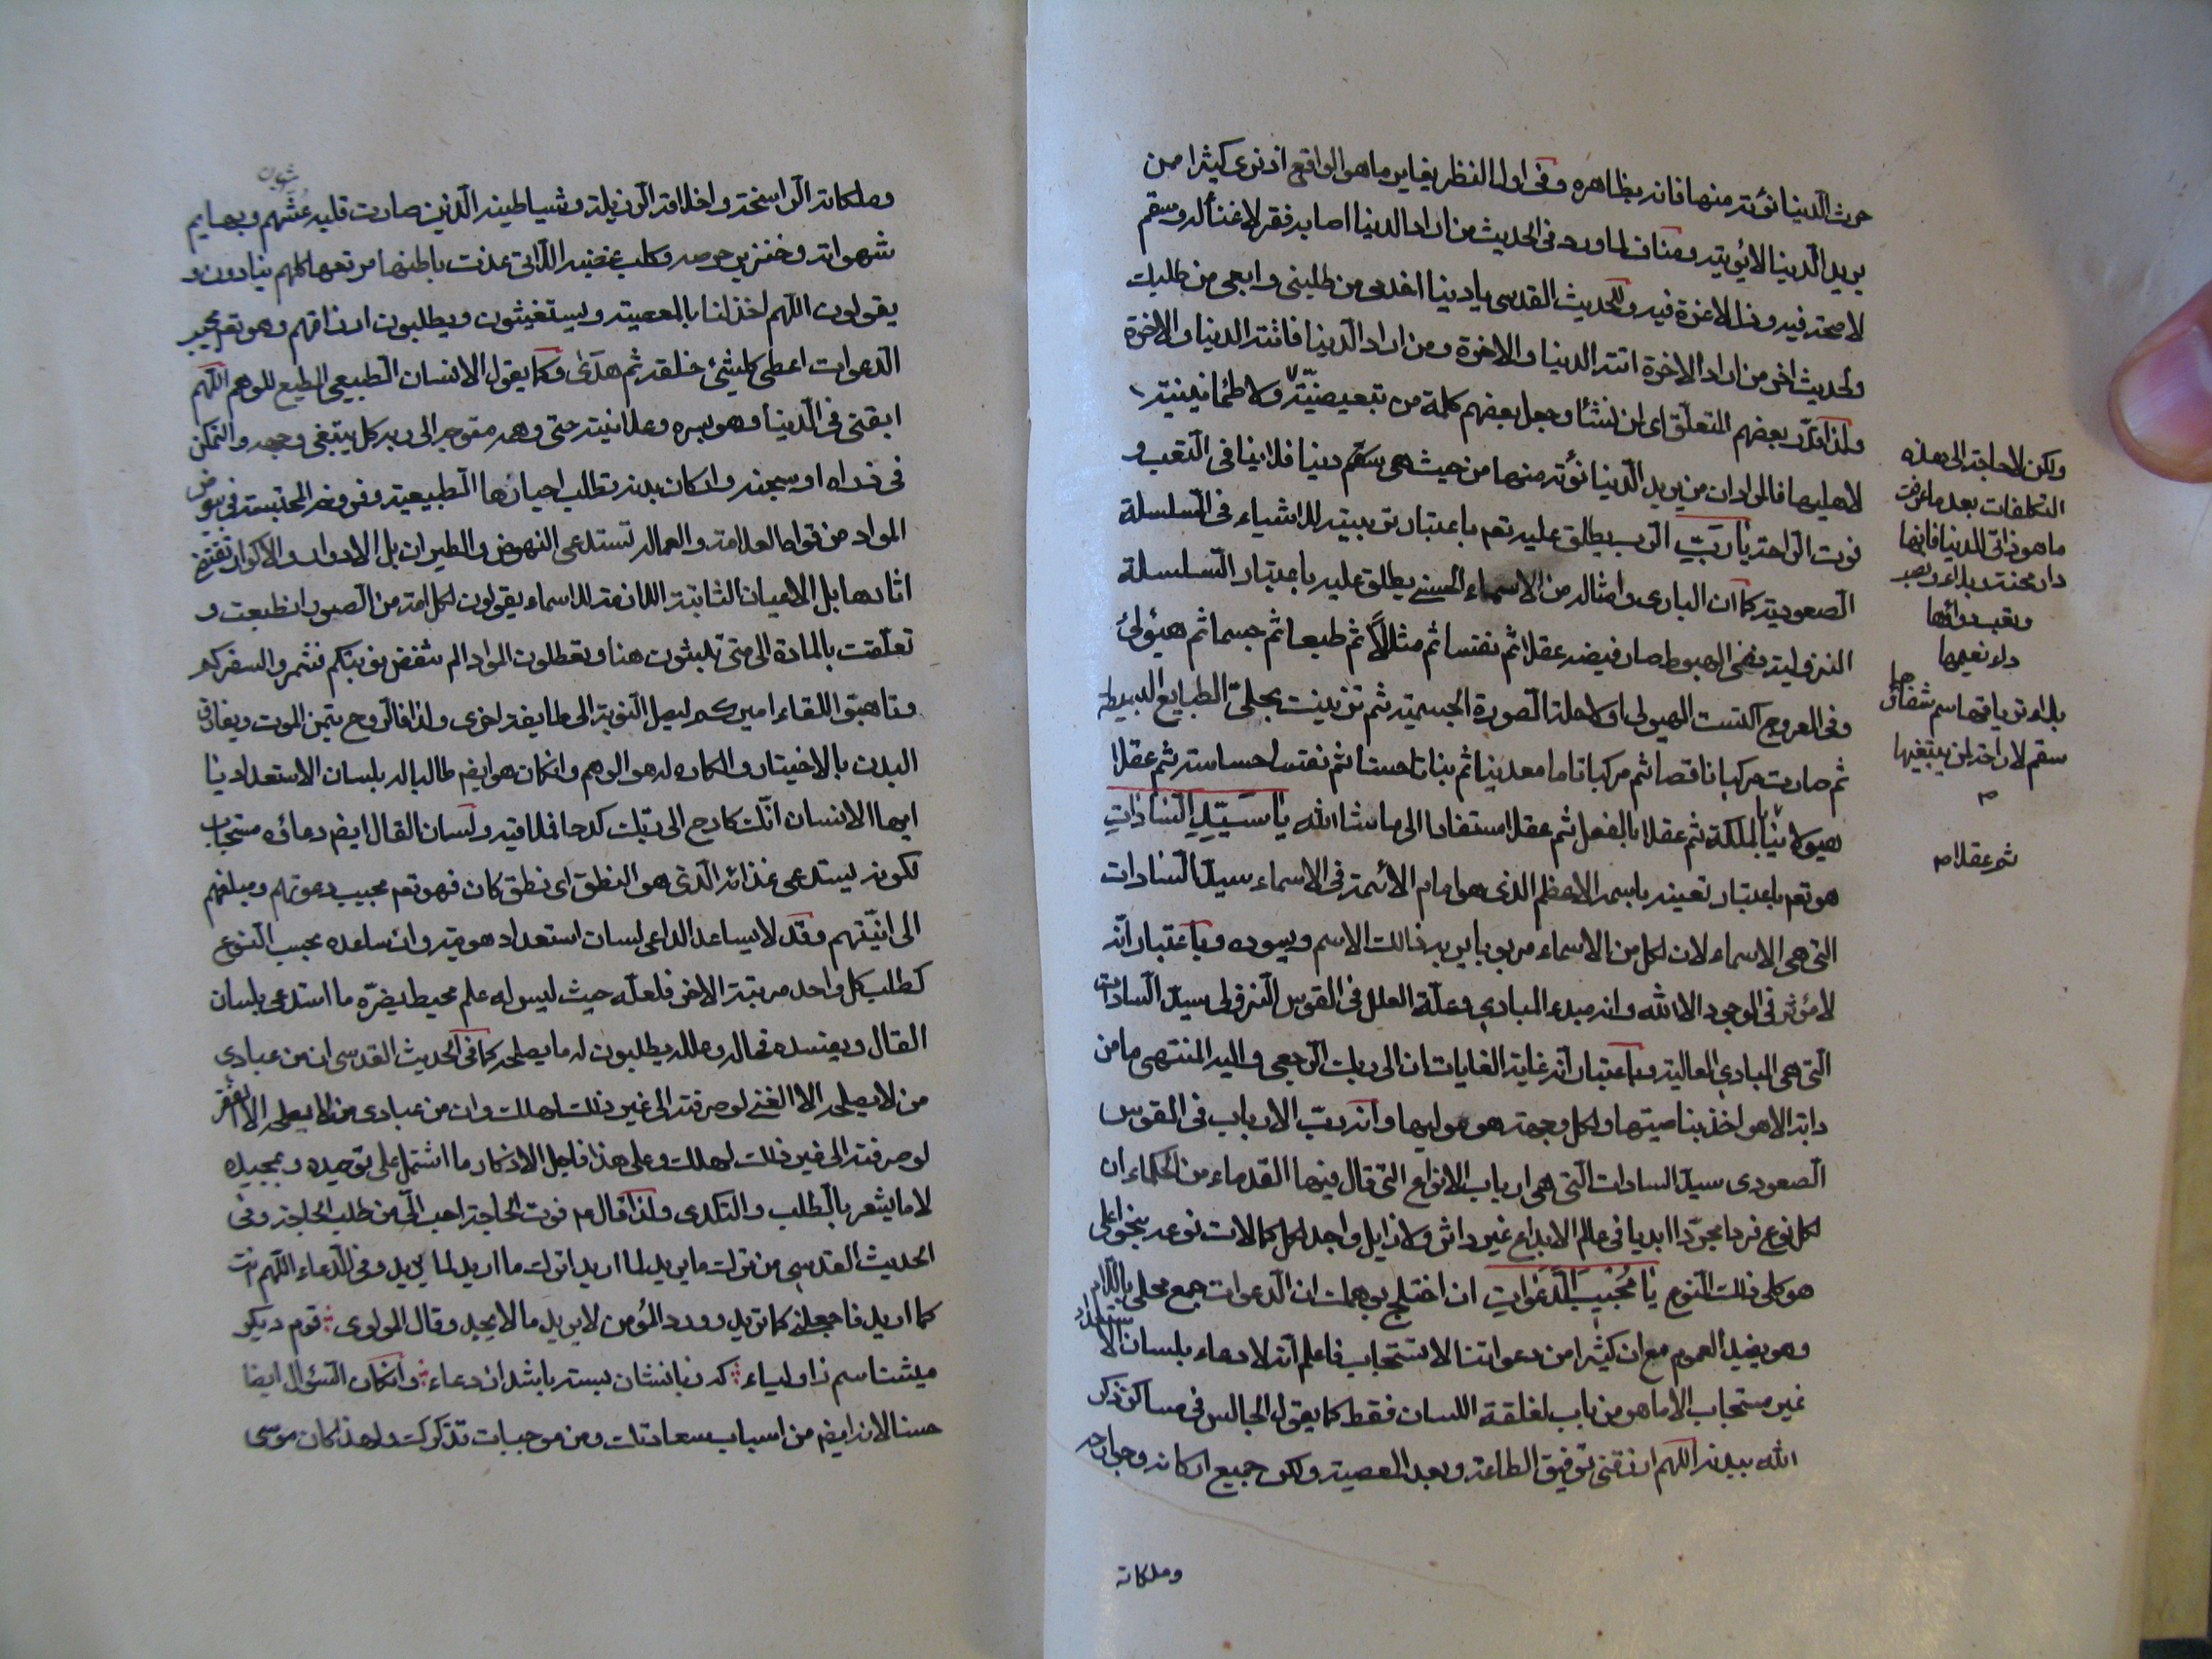 حرث الدنيا نؤته منها فانه بظاهره وفى اول النظر يغاير ما هو الواقع اذ نرى كثيرا ممن
يريد الدنيا لا يؤتيه ومناف لما ورد فى الحديث من اراد الدنيا اصابه فقر لا غناء له وسقم
لا صحة فيه وذل لا عزة فيه والحديث القدسى يا دنيا اخدمى من طلبنى واتعبى من طلبك
ولحديث اخر من اراد الاخرة اتته الدنيا والاخرة ومن اراد الدنيا فاتته الدنيا والاخرة
ولذا قدر بعضهم المتعلق اى ان نشأ وجعل بعضهم كلمة من تبعيضية ولا طمأنينية
لاهليها فالمراد ان من يريد الدنيا نؤته منها من حيث هى دنيا فلا ينافى التعب و
فوت الراحة يا رب الرب يطلق عليه تعم باعتبار تربيته للاشياء فى السلسلة
الصعودية كما ان البارى وامثاله من الاسماء الحسنى يطلق عليه باعتبار السلسلة
النزولية ففى الهبوط صار فيضه عقلا ثم نفسا ثم مثالا ثم طبعا ثم جسما ثم هيولى
وفى العروج اكتست الهيولى اولا حلة الصورة الجسمية ثم تزينت بحلى الطبايع البسيطة
ثم صارت مركبا ناقصا ثم مركبا تاما معدنيا ثم نباتا حسنا ثم نفسا حساسة ثم عقلا
هيولانيا بالملكة ثم عقلا بالفعل ثم عقلا مستفادا الى ما شاء الله يا سيد السادات
هو تعم باعتبار تعينه باسمه الاعظم الذى هو امام الائمة فى الاسماء سيد السادات
التى هى الاسماء لان لكل من الاسماء مربوبا يربه ذالك الاسم ويسوده وباعتبار انه
لا مؤثر فى الوجود الا الله وانه مبدء المبادى وعلة العلل فى القوس النزولى سيد السادات
التى هى المبادى العالية وباعتبار انه غاية الغايات ان الى ربك الرجعى واليه المنتهى ما من
دابة الا هو اخذ بناصيتها ولكل وجهة هو موليها وانه رب الارباب فى القوس
الصعودى سيد السادات التى هى ارباب الانواع التى قال فيها القدماء من الحكماء ان
لكل نوع فردا مجردا ابديا فى عالم الابداع غير داثر ولا زايل واجد لكل كمالات نوعه بنحو اعلى
هو كلى ذالك النوع يا مجيب الدعوات ان اختلج بوهمك ان الدعوات جمع محلى باللام
وهو يفيد العموم مع ان كثيرا من دعواتنا لا تستجاب فاعلم انه لا دعاء بلسان الا
غير مستجاب الا ما هو من باب لقلقة اللسان فقط كما يقول الجالس فى مساكن ذكر
الله ببدنه اللهم ارزقنى توفيق الطاعة وبعد المعصية ولكن جميع اركانه وجوارحه
وملكاته
ولكن لا حاجة الى هذه
التكلفات بعد ما عرفت
ما هو ذاتى للدنيا فانها
دار محنة وبلاء
وتعب دوائها
داء نعيمها
بلاء ترياقها سم شفاؤها
سقم لا راحة لمن يبتغيها
م
ثم عقلا م
وملكاته الراسخة واخلاقه الرذيلة وشياطينه الذين صارت قلبه عشهم وبهايم
شهواته وخنزير حرصه وكلب غضبه اللاتى غدت باطنها مرتعها كلهم ينادون و
يقولون اللهم اخذلنا بالمعصية ويستغيثون ويطلبون ارزاقهم وهو تعم مجيب
الدعوات اعطى كل شئ خلقه ثم هدى وكما يقول الانسان الطبيعى المطيع للوهم اللهم
ابقنى فى الدنيا وهو بسره وعلانيته حتى وهمه متوجه الى ربه كل يبتغى وجهه والتمكن
فى داره او سجنه واركان بدنه تطلب احيازها الطبيعية وفروخه المحتبسة فى بيوض
المواد من قواه العلامة والعمالة تستدعى النهوض والطيران بل الادوار والاكوار تقتضى
اثارها بل الاعيان الثابتة اللازمة للاسماء يقولون لكل امة من الصور انطبعت و
تعلقت بالمادة الى متى تلبثون هنا وتعطلون المواد الم تنقض نوبتكم فشمروا لسفركم
وتاهبوا للقاء اميركم ليصل النوبة الى طايفة اخرى ولذا فالروح يتمنى الموت ويفارق
البدن بالاختيار والكاره له هو الوهم وان كان هو ايضم طالبا له بلسان الاستعداد يا
ايها الانسان انك كادح الى ربك كدحا فملاقيه ولسان القال ايضم دعائه مستجاب
لكونه يستدعى غذائه الذى هو النطق اى نطق كان فهو تعم مجيب دعوتهم ومبلغهم
الى امنيتهم وقد لا يساعد الداعى لسان استعداد هويته وان ساعده بحسب النوع
كطلب كل واحد مرتبة الاخر فلعله حيث ليس له علم محيط يضره ما استدعى بلسان
القال ويفسد حاله وعلله يطلبون له ما يصلحه كما فى الحديث القدسى ان من عبادى
من لا يصلحه الا الغنى لو صرفته الى غير ذلك لهلك وان من عبادى من لا يصلحه الا الفقر
لو صرفته الى غير ذلك لهلك وعلى هذا فاجل الاذكار ما اشتمل على توحيده وتمجيده
لا ما يشعر بالطلب والتكدى ولذا قال م فوت الحاجة احب الى من طلب الحاجة وفى
الحديث القدسى من ترك ما يريد لما اريد اترك ما اريد لما يريد وفى الدعاء اللهم انت
كما اريد فاجعلنى كما تريد وورد المؤمن لا يريد ما لا يجد وقال المولوى قوم ديكر
ميشناسم ز اولياء كه زبانشان بسته باشد از دعاء وان كان السؤال ايضا
حسنا لانه ايضم من اسباب سعادتك ومن موجبات تذكرك ولهذا كان موسى